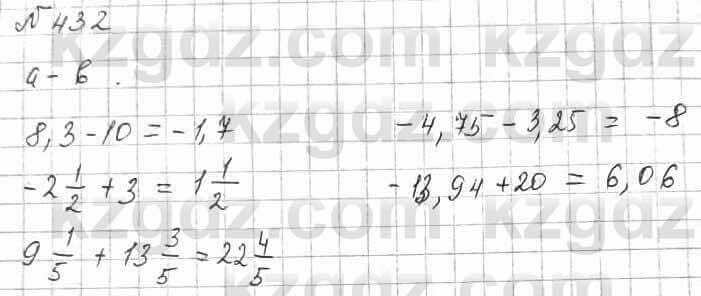 № 432
a - b.
8,3 - 10 = -1,7
-4,75 - 3,25 = -8
-2 1/2 + 3 = 1 1/2
-13,94 + 20 = 6,06
9 1/5 + 13 3/5 = 22 4/5
kzgdz.com
kzgdz.com
kzgdz.com
kzgdz.com
kzgdz.com